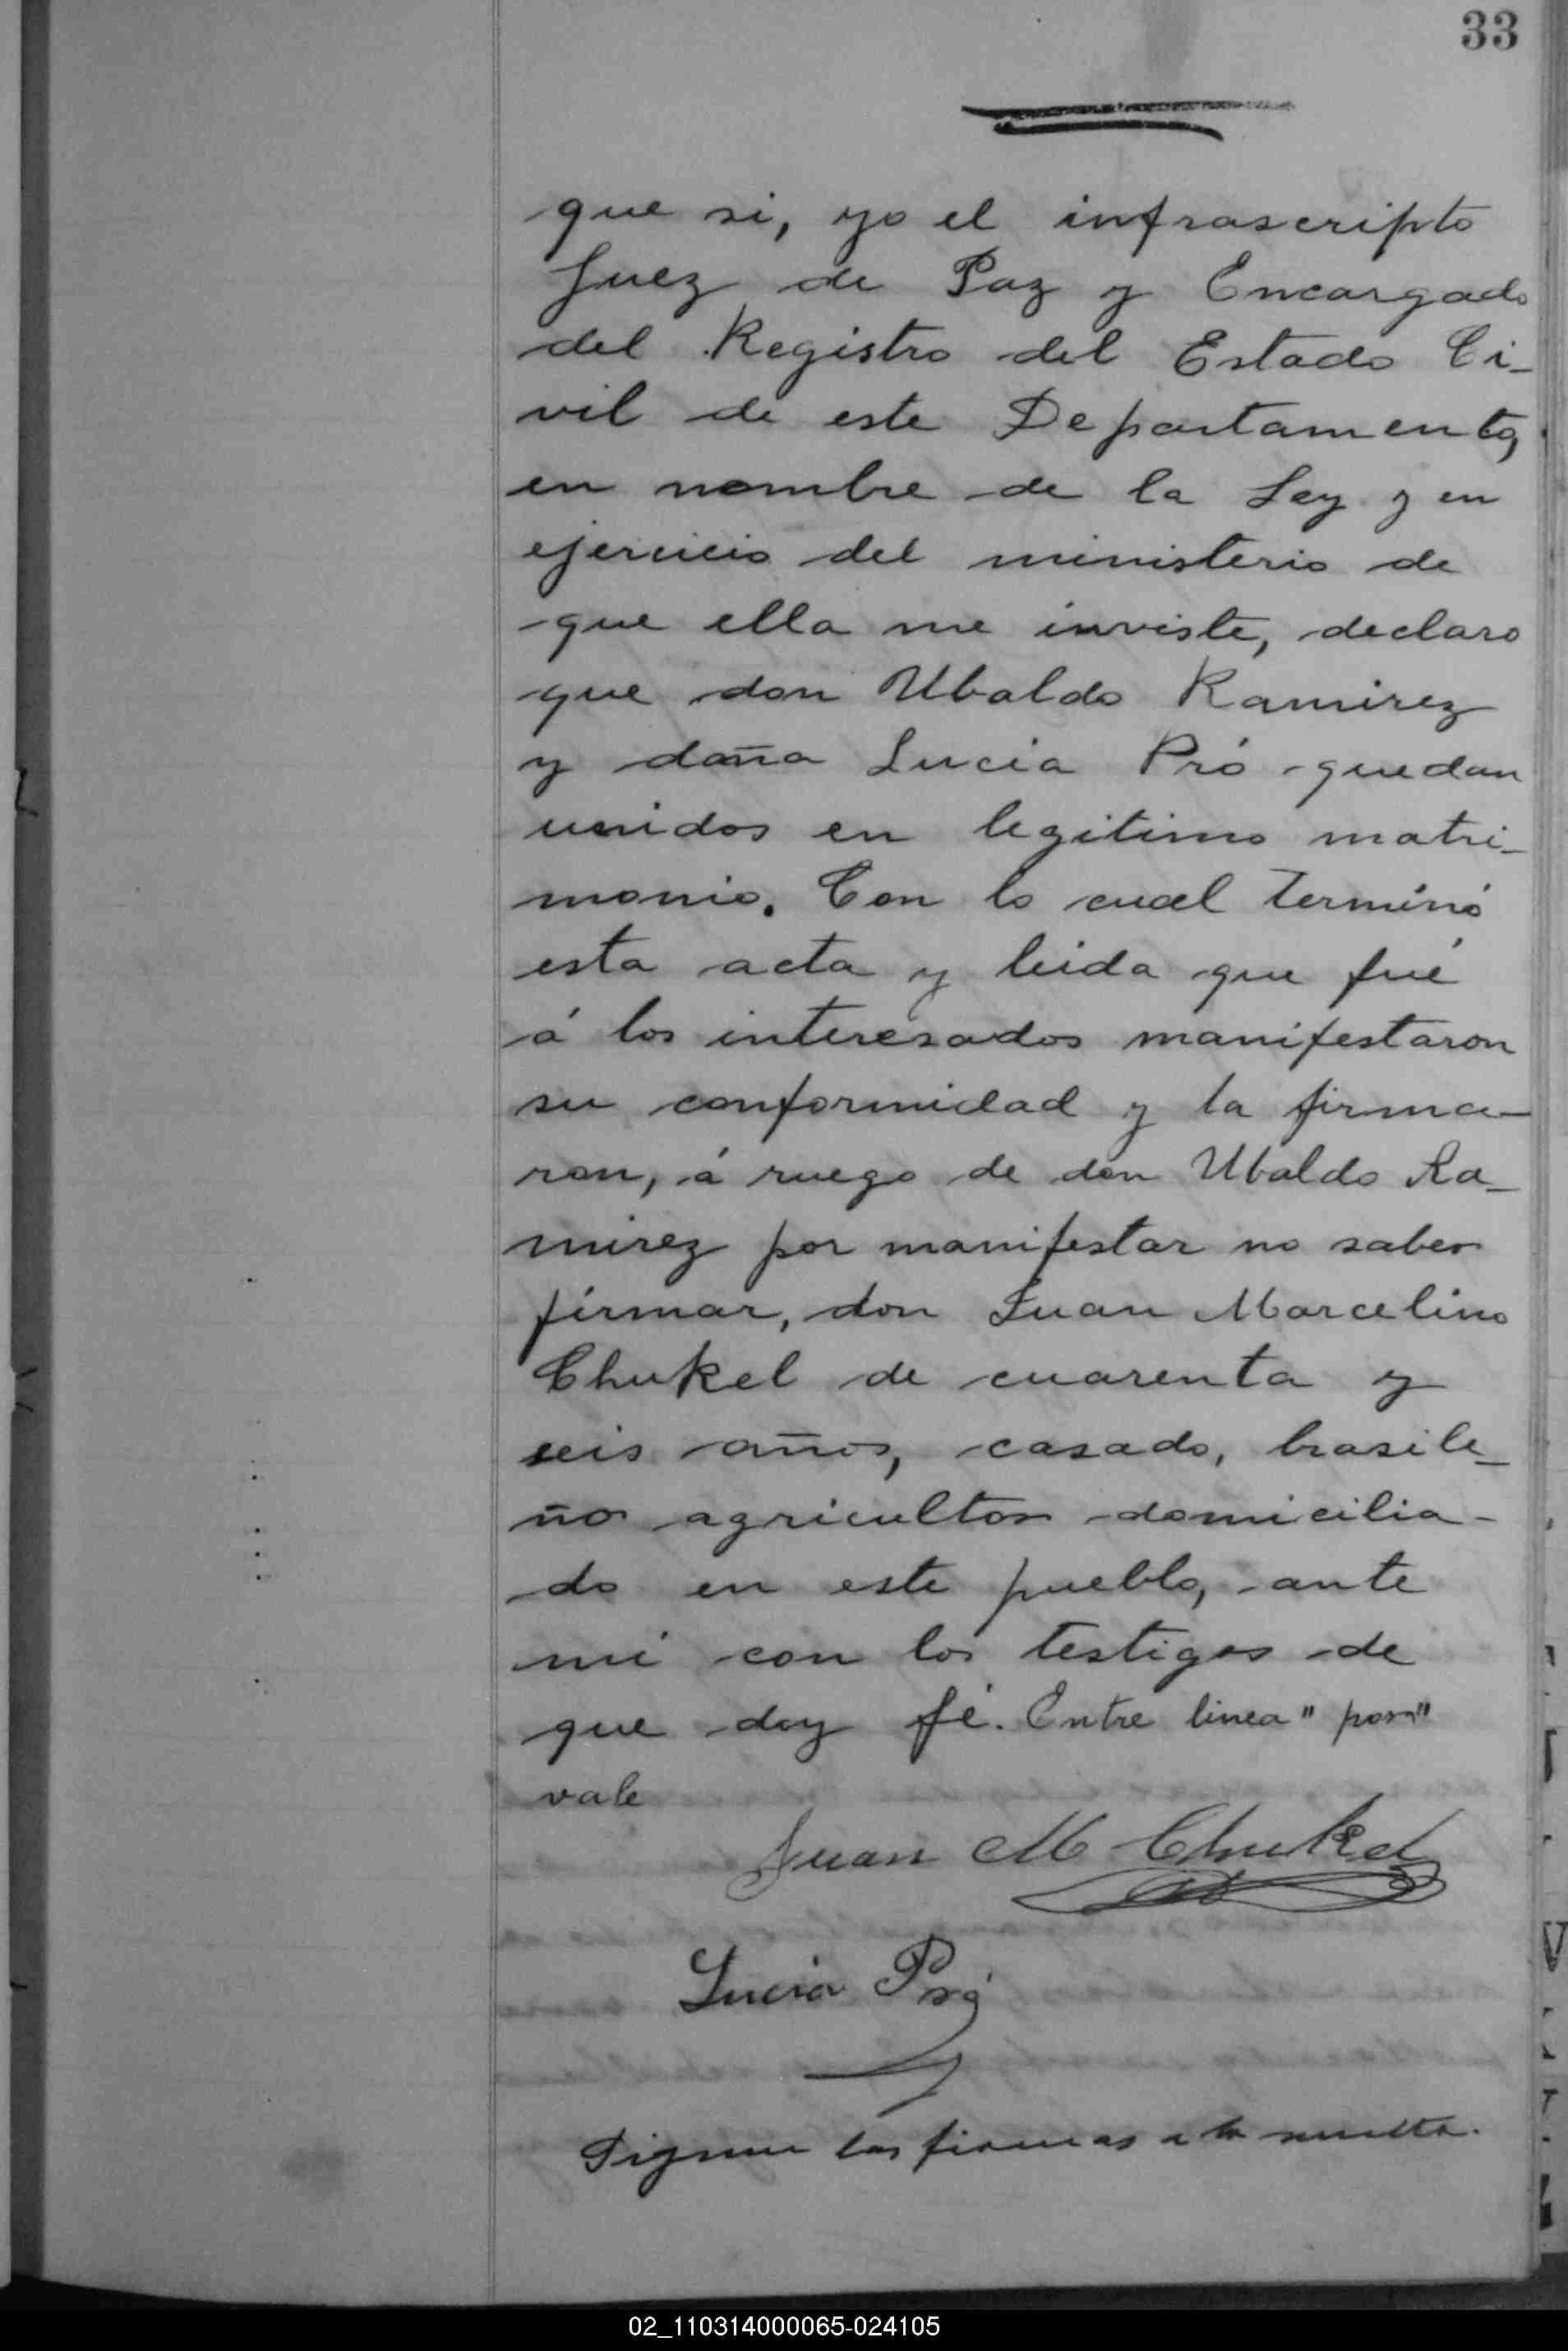 33
que si, yo el infrascripto
Juez de Paz y Encargado
del Registro del Estado Ci-
vil de este Departamento,
en nombre de la Ley y en
ejercicio del ministerio de
que ella me inviste, declaro
que don Ubaldo Ramirez
y doña Lucia Pró quedan
unidos en legitimo matri-
monio. Con lo cual terminó
esta acta y leida que fué
á los interesados manifestaron
su conformidad y la firma-
ron, á ruego de don Ubaldo Ra-
mirez por manifestar no saber
firmar, don Juan Marcelino
Chukel de cuarenta y
seis años, casado, brasile-
ño agricultor domicilia-
do en este pueblo, ante
mi con los testigos de
que doy fé. Entre linea "por"
vale
Juan M Chukel
Lucia Pró
Siguen las firmas a la vuelta.
02_110314000065-024105